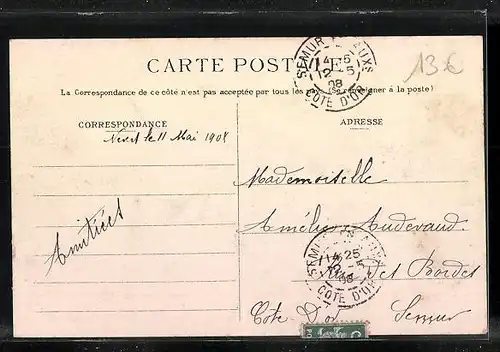 CARTE POSTALE
SEMUR EN AUXS
14-5
12-5
08
COTE D'OR
13 €
La Correspondance de ce côté n'est pas acceptée par tous les (Se renseigner à la poste)
CORRESPONDANCE
ADRESSE
le 11 Mai 1908
Mademoiselle
Amitiés
Amélie Audevaud
SEMUR EN AUXS
14 25
12-5
08
COTE D'OR
Rue des Bordes
Côte d'Or Semur